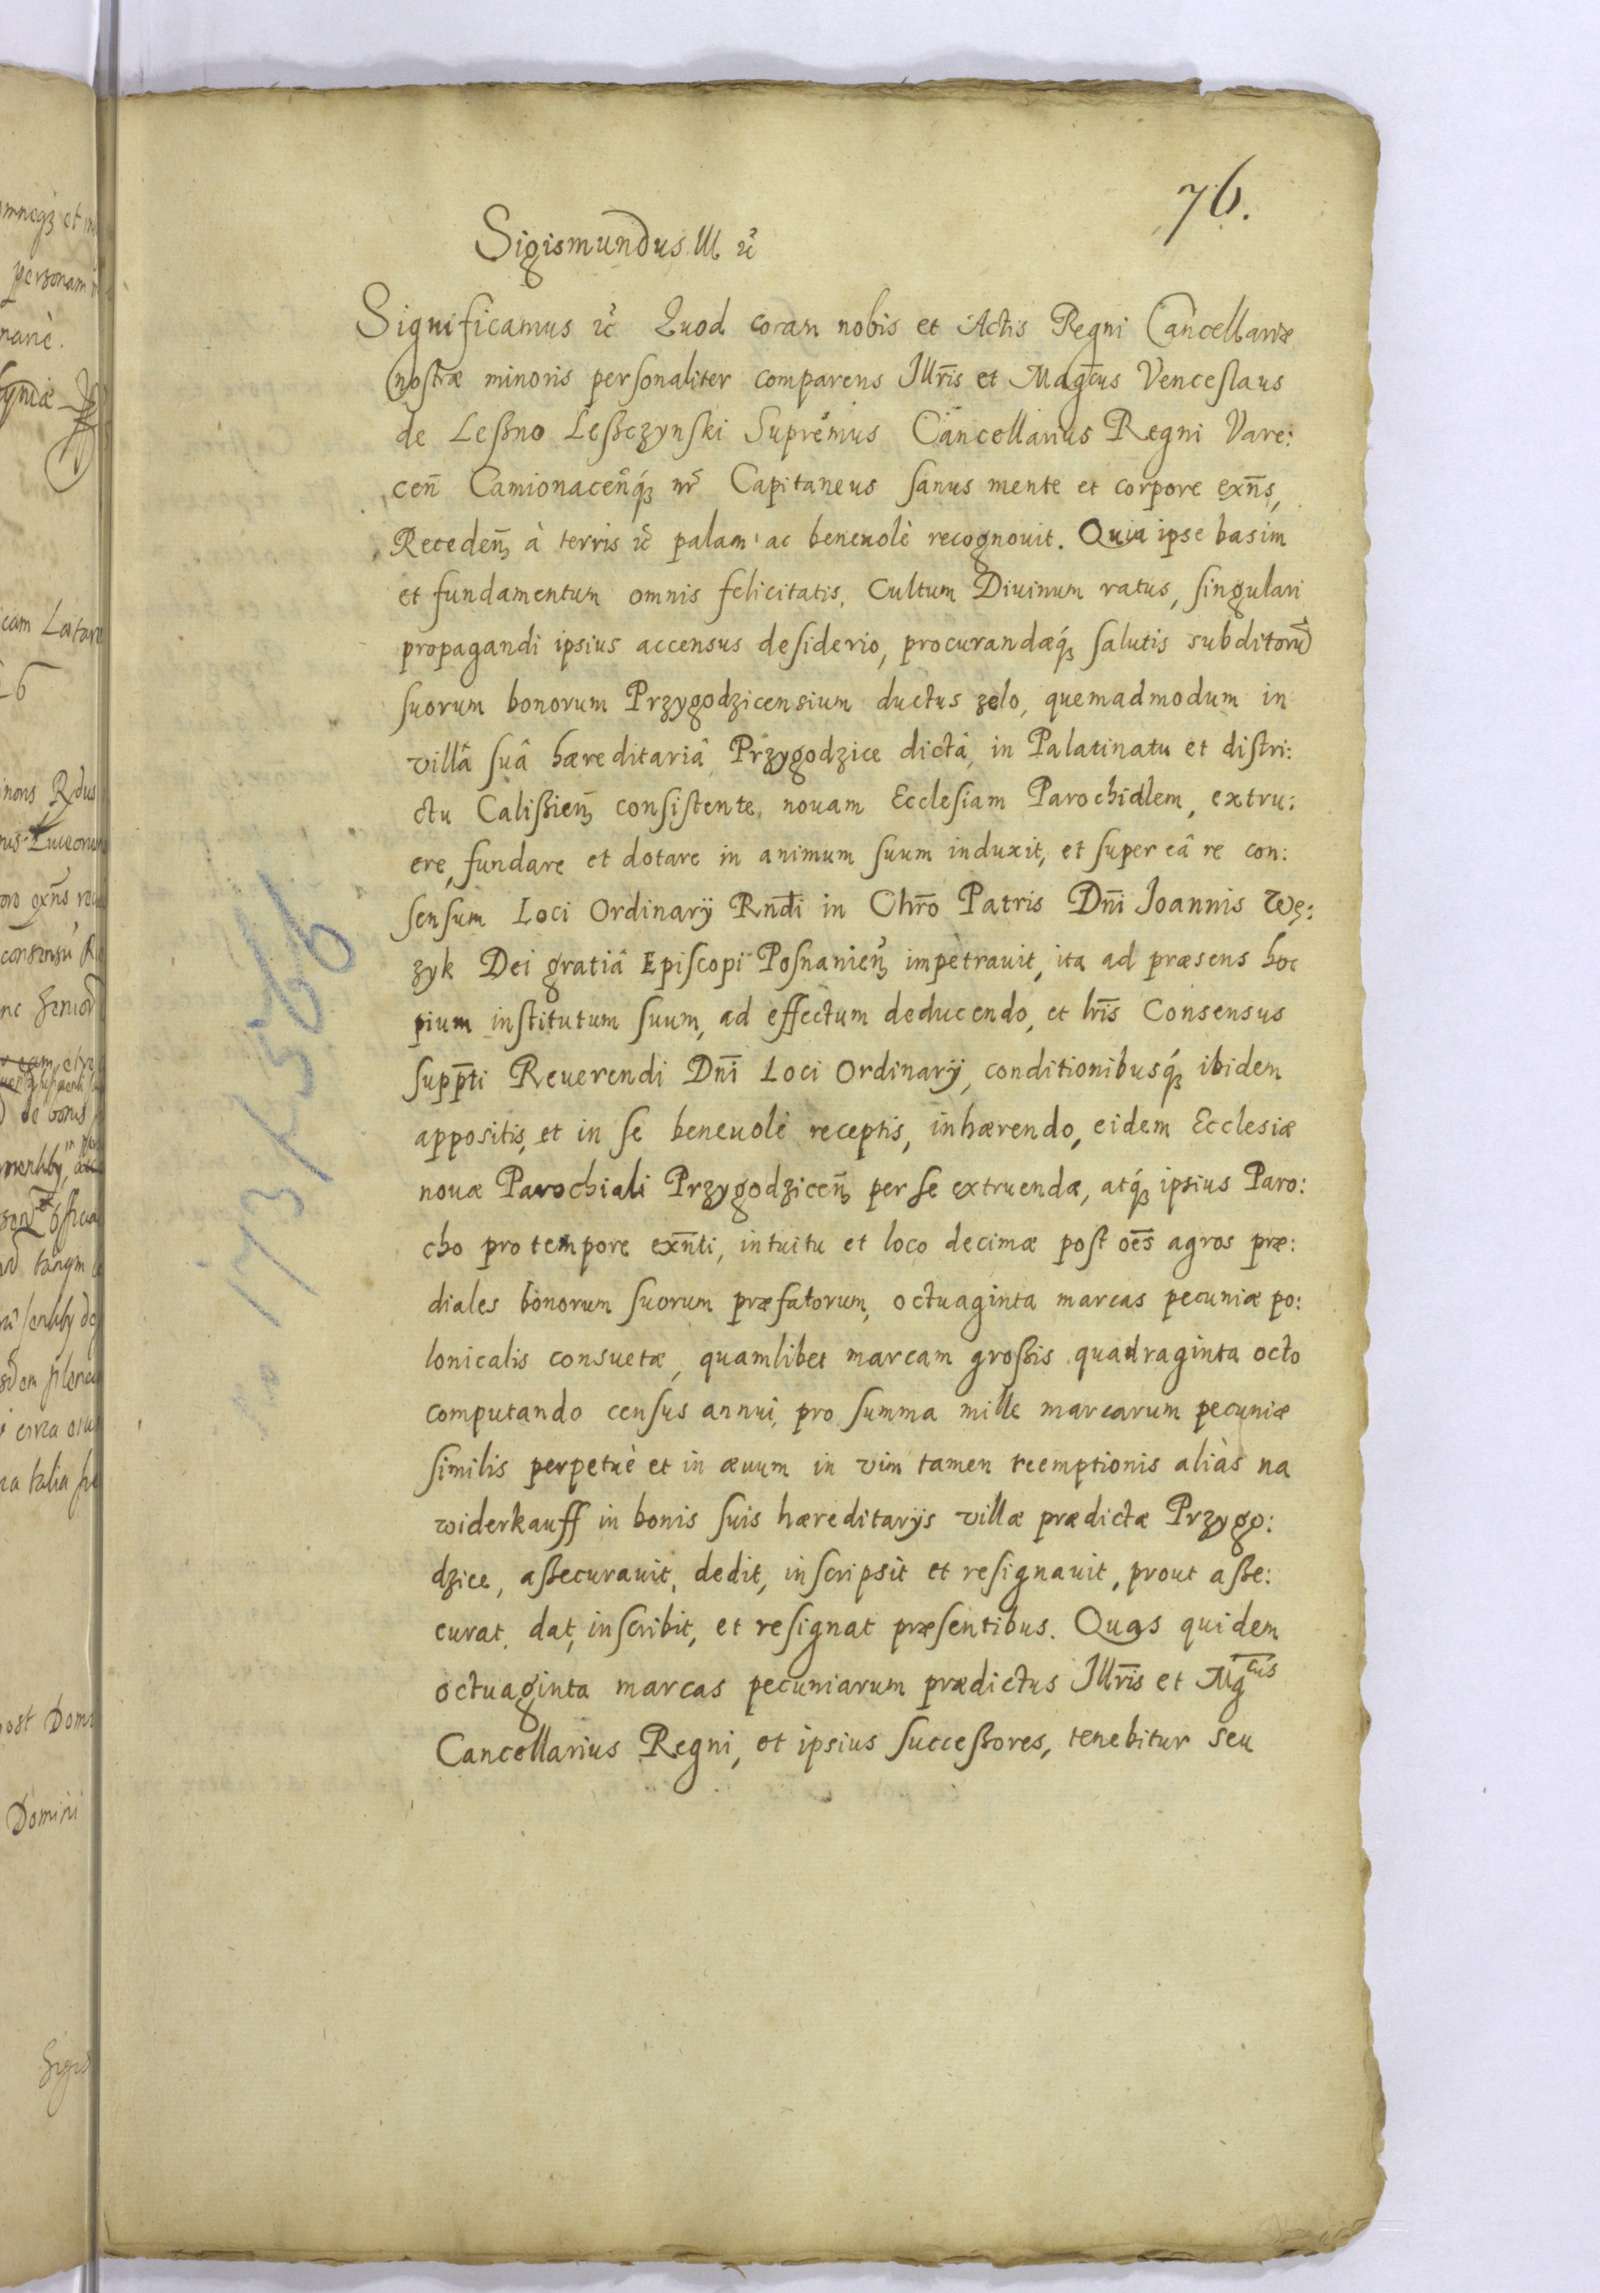 76.
Sigismundus III etc
Significamus etc Quod coram nobis et Actis Regni Cancellariæ
nostræ minoris personaliter comparens Illr̃is et Magc̃us Venceslaus
de Leßno Leßczynski Supremus Cancellarius Regni Vare:
ceñ Camionaceñq́ꝫ nr̃ Capitaneus sanus mente et corpore exñs,
Recedeñ à terris etc palam ac beneuolè recognouit. Quia ipse basim
et fundamentum omnis felicitatis, Cultum Diuinum ratus, singulari
propagandi ipsius accensus desiderio, procurandæq́ꝫ salutis subditorũ
suorum bonorum Przygodzicensium ductus zelo, quemadmodum in
villâ suâ hæreditariâ Przygodzice dictâ, in Palatinatu et distri:
ctu Calißieñ consistente, nouam Ecclesiam Parochialem, extru:
ere, fundare et dotare in animum suum induxit, et super eâ re con:
sensum Loci Ordinarÿ Rndi in Chr̃o Patris Dñi Joannis Wę:
zyk Dei gratiâ Episcopi Posnanieñ impetrauit, ita ad præsens hoc
pium institutum suum, ad effectum deducendo, et lr̃is Consensus
supp̃ti Reuerendi Dñi Loci Ordinarÿ, conditionibusq́ꝫ ibidem
appositis, et in se beneuolè receptis, inhærendo, eidem Ecclesiæ
nouæ Parochiali Przygodziceñ per se extruendæ, atq́ꝫ ipsius Paro:
cho pro tempore exñti, intuitu et loco decimæ post oẽs agros præ:
diales bonorum suorum præfatorum, octuaginta marcas pecuniæ po:
lonicalis consuetæ, quamlibet marcam großis quadraginta octo
computando census annui, pro summa mille marcarum pecuniæ
similis perpetuè et in æuum in vim tamen reemptionis aliàs na
widerkauff in bonis suis hæreditarÿs villæ prædictæ Przygo:
dzice, aßecurauit, dedit, inscripsit et resignauit, prout aße:
curat, dat, inscribit, et resignat præsentibus. Quas quidem
octuaginta marcas pecuniarum prædictus Illr̃is et Mgcus
Cancellarius Regni, et ipsius succeßores, tenebitur seu
173/566